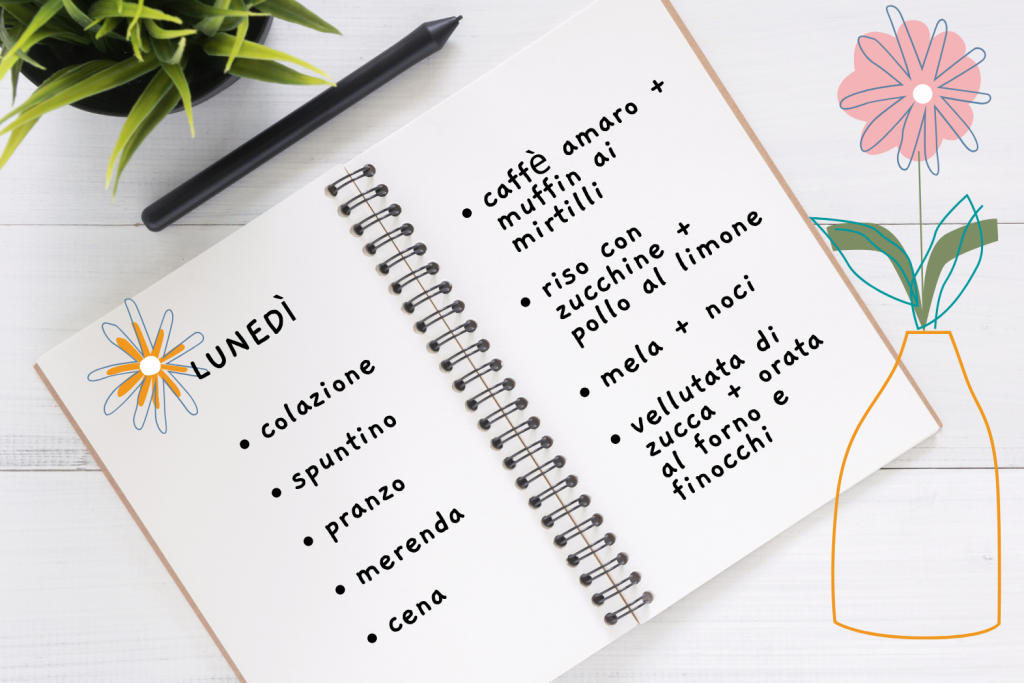 LUNEDÌ
• colazione
• spuntino
• pranzo
• merenda
• cena
• caffè amaro +
muffin ai
mirtilli
• riso con
zucchine +
pollo al limone
• mela + noci
• vellutata di
zucca + orata
al forno e
finocchi